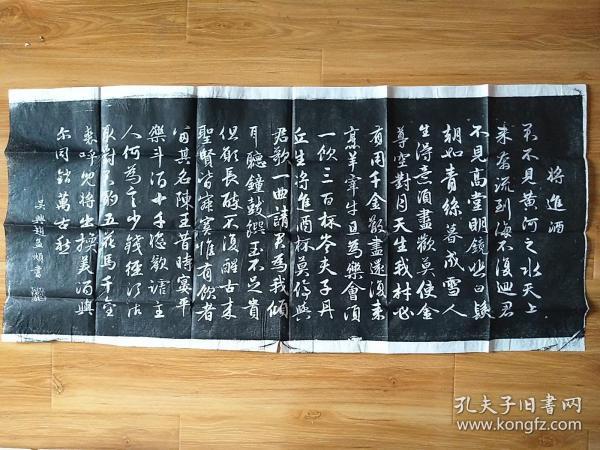 將進酒
君不見黃河之水天上
来奔流到海不復迴君
不見高堂明鏡悲白髮
朝如青絲暮成雪人
生得意須盡歡莫使金
尊空對月天生我材必
有用千金散盡還復来
烹羊宰牛且為樂會須
一飲三百杯岑夫子丹
丘生將進酒杯莫停與
君歌一曲請君為我傾
耳聽鐘鼓饌玉不足貴
但願長醉不復醒古来
聖賢皆寂寞惟有飲者
留其名陳王昔時宴平
樂斗酒十千恣歡謔主
人何為言少錢徑須沽
取對君酌五花馬千金
裘呼兒將出換美酒與
尔同銷萬古愁
吳興趙孟頫書
孔夫子旧书网
www.kongfz.com